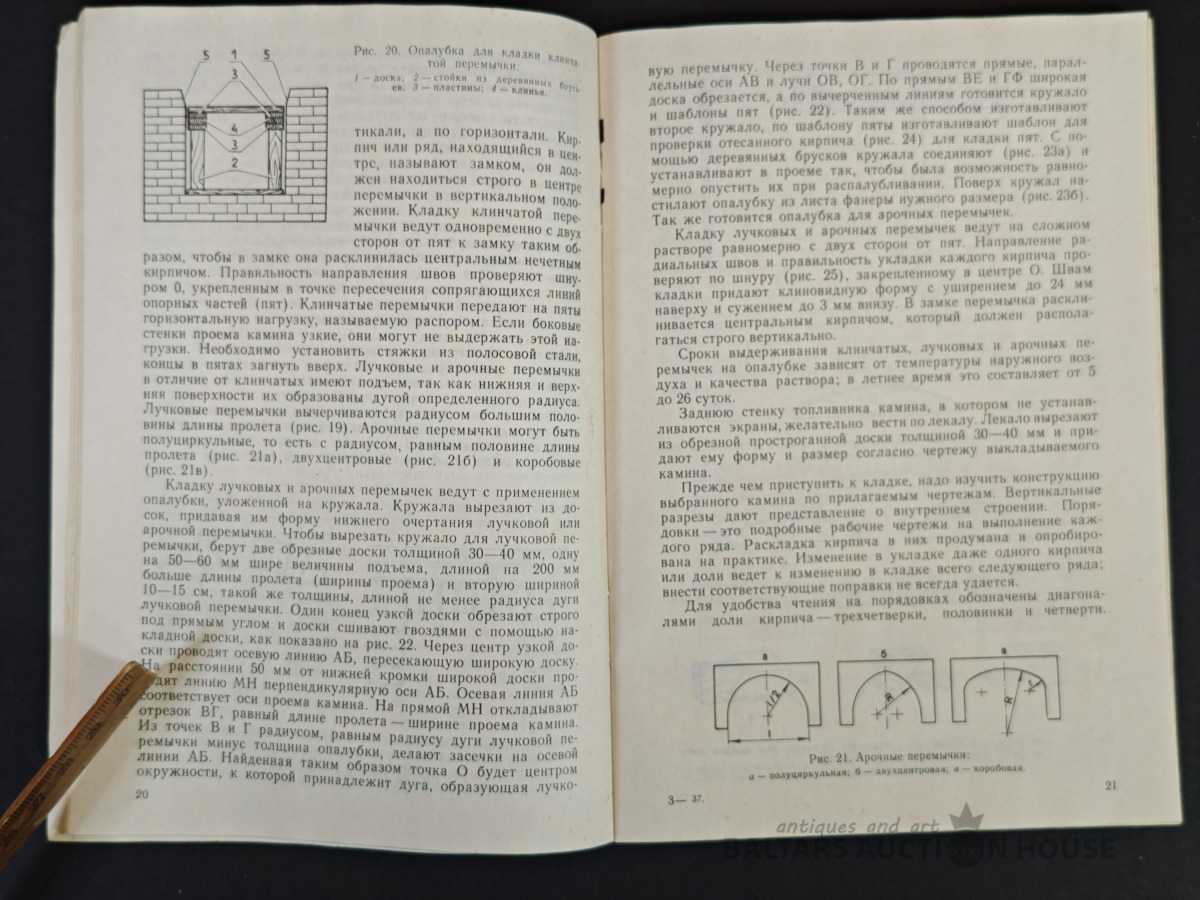 5 1 5
3
4
3
2
Рис. 20. Опалубка для кладки клинча-
той перемычки:
1 — доска; 2 — стойки из деревянных брусь-
ев; 3 — пластины; 4 — клинья.
тикали, а по горизонтали. Кир-
пич или ряд, находящийся в цен-
тре, называют замком, он дол-
жен находиться строго в центре
перемычки в вертикальном поло-
жении. Кладку клинчатой пере-
мычки ведут одновременно с двух
сторон от пят к замку таким об-
разом, чтобы в замке она расклинилась центральным нечетным
кирпичом. Правильность направления швов проверяют шну-
ром 0, укрепленным в точке пересечения сопрягающихся линий
опорных частей (пят). Клинчатые перемычки передают на пяты
горизонтальную нагрузку, называемую распором. Если боковые
стенки проема камина узкие, они могут не выдержать этой на-
грузки. Необходимо установить стяжки из полосовой стали,
концы в пятах загнуть вверх. Лучковые и арочные перемычки
в отличие от клинчатых имеют подъем, так как нижняя и верх-
няя поверхности их образованы дугой определенного радиуса.
Лучковые перемычки вычерчиваются радиусом большим поло-
вины длины пролета (рис. 19). Арочные перемычки могут быть
полуциркульные, то есть с радиусом, равным половине длины
пролета (рис. 21а), двухцентровые (рис. 21б) и коробовые
(рис. 21в).
Кладку лучковых и арочных перемычек ведут с применением
опалубки, уложенной на кружала. Кружала вырезают из до-
сок, придавая им форму нижнего очертания лучковой или
арочной перемычки. Чтобы вырезать кружало для лучковой пе-
ремычки, берут две обрезные доски толщиной 30—40 мм, одну
на 50—60 мм шире величины подъема, длиной на 200 мм
больше длины пролета (ширины проема) и вторую шириной
10—15 см, такой же толщины, длиной не менее радиуса дуги
лучковой перемычки. Один конец узкой доски обрезают строго
под прямым углом и доски сшивают гвоздями с помощью на-
кладной доски, как показано на рис. 22. Через центр узкой до-
ски проводят осевую линию АБ, пересекающую широкую доску.
На расстоянии 50 мм от нижней кромки широкой доски про-
водят линию МН перпендикулярную оси АБ. Осевая линия АБ
соответствует оси проема камина. На прямой МН откладывают
отрезок ВГ, равный длине пролета — ширине проема камина.
Из точек В и Г радиусом, равным радиусу дуги лучковой пе-
ремычки минус толщина опалубки, делают засечки на осевой
линии АБ. Найденная таким образом точка О будет центром
окружности, к которой принадлежит дуга, образующая лучко-
20
вую перемычку. Через точки В и Г проводятся прямые, парал-
лельные оси АВ и лучи ОВ, ОГ. По прямым ВЕ и ГФ широкая
доска обрезается, а по вычерченным линиям готовится кружало
и шаблоны пят (рис. 22). Таким же способом изготавливают
второе кружало, по шаблону пяты изготавливают шаблон для
проверки отесанного кирпича (рис. 24) для кладки пят. С по-
мощью деревянных брусков кружала соединяют (рис. 23а) и
устанавливают в проеме так, чтобы была возможность равно-
мерно опустить их при распалубливании. Поверх кружал на-
стилают опалубку из листа фанеры нужного размера (рис. 23б).
Так же готовится опалубка для арочных перемычек.
Кладку лучковых и арочных перемычек ведут на сложном
растворе равномерно с двух сторон от пят. Направление ра-
диальных швов и правильность укладки каждого кирпича про-
веряют по шнуру (рис. 25), закрепленному в центре О. Швам
кладки придают клиновидную форму с уширением до 24 мм
наверху и сужением до 3 мм внизу. В замке перемычка раскли-
нивается центральным кирпичом, который должен распола-
гаться строго вертикально.
Сроки выдерживания клинчатых, лучковых и арочных пе-
ремычек на опалубке зависят от температуры наружного воз-
духа и качества раствора; в летнее время это составляет от 5
до 26 суток.
Заднюю стенку топливника камина, в котором не устанав-
ливаются экраны, желательно вести по лекалу. Лекало вырезают
из обрезной простроганной доски толщиной 30—40 мм и при-
дают ему форму и размер согласно чертежу выкладываемого
камина.
Прежде чем приступить к кладке, надо изучить конструкцию
выбранного камина по прилагаемым чертежам. Вертикальные
разрезы дают представление о внутреннем строении. Поря-
довки — это подробные рабочие чертежи на выполнение каж-
дого ряда. Раскладка кирпича в них продумана и опробиро-
вана на практике. Изменение в укладке даже одного кирпича
или доли ведет к изменению в кладке всего следующего ряда;
внести соответствующие поправки не всегда удается.
Для удобства чтения на порядовках обозначены диагона-
лями доли кирпича — трехчетверки, половинки и четверти.
а б в
l/2 R R r
l
Рис. 21. Арочные перемычки:
а — полуциркульная; б — двухцентровая; в — коробовая.
3— 37.
21
antiques and art
BALTARS AUCTION HOUSE